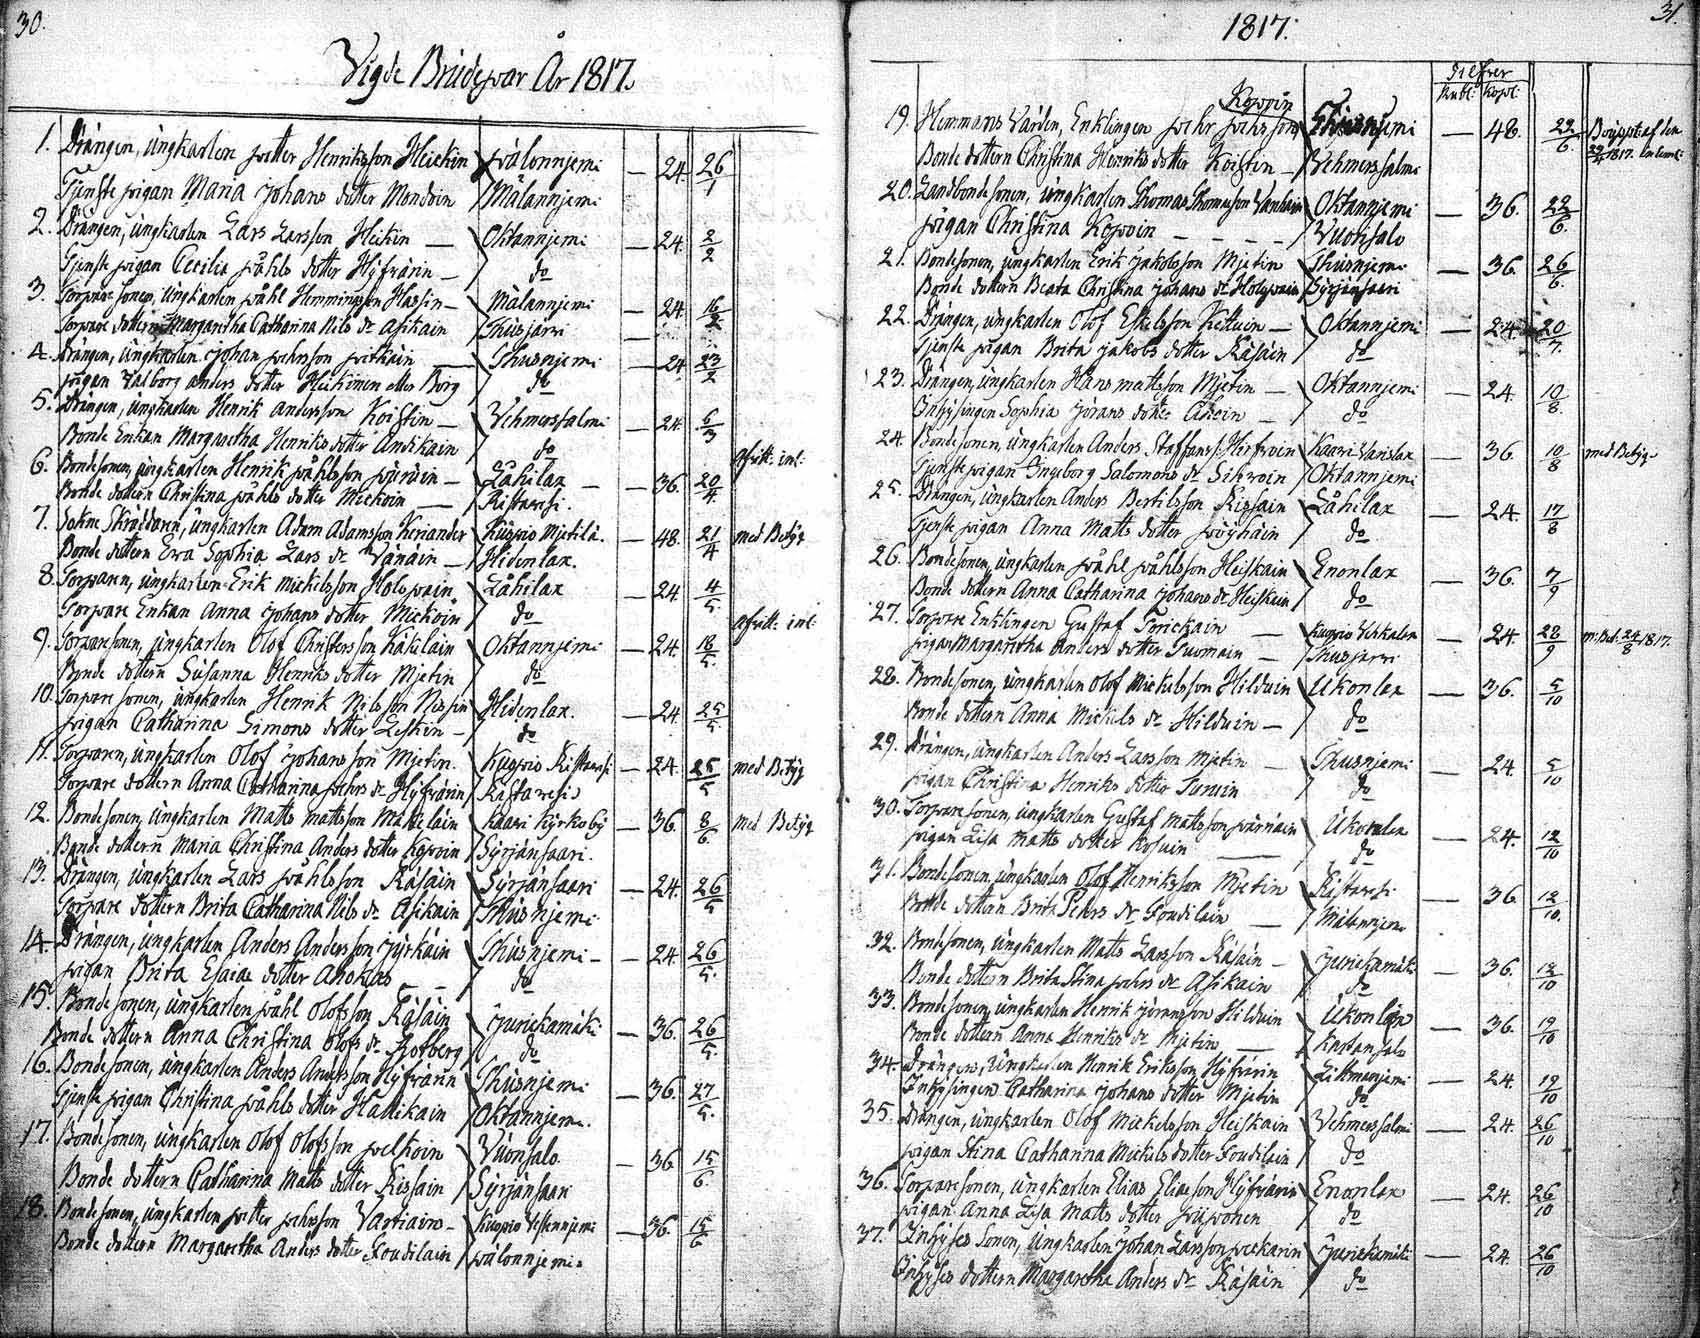 30.
Vigde Brudepar År 1817.
1. Drängen, ungkarlen Petter Henriksson Heickin Pälonnjemi — 24. 26/1
Tjenste pigan Maria Johans dotter Mondoin Mälannjemi
2. Drängen, ungkarlen Lars Larsson Heikin — Oktannjemi — 24. 2/2
Tjenste pigan Cecilia Påhls dotter Hyfvärin — do
3. Torpare sonen, ungkarlen Påhl Hemmingsson Hassin — Mälannjemi — 24. 16/2
Torpare dottern Margaretha Catharina Nils dr Asikain Thusjarvi —
4. Drängen, ungkarlen Johan Pehrsson Pitkäin — Thusnjemi — 24. 23/2
pigan Valborg Anders dotter Heikinen eller Borg do
5. Drängen, ungkarlen Henrik Andersson Koistin — Vehmerssalmi — 24. 6/3
Bonde Enkan Margaretha Henriks dotter Antikain do
6. Bonde sonen, ungkarlen Henrik Påhlsson — Låhilax — 36. 20/4 afvitt: inl:
Bonde dottern Christina Påhls dotter Mickoin — Ristavesi.
7. Sokne Skräddaren, ungkarlen Adam Adamsson Keriander Kuopio Mjetilä. — 48. 21/4 med Betyg
Bonde dottern Eva Sophia Lars dr Vänäin — Hidenlax.
8. Torparen, ungkarlen Erik Mickelsson Holopain Låhilax — 24. 4/5.
Torpare Enkan Anna Johans dotter Mickoin do afvitt: inl:
9. Torpare sonen, ungkarlen Olof Christersson Käkiläin Oktannjemi — 24. 18/5.
Bonde dottern Susanna Henriks dotter Mjetin do
10. Torpare sonen, ungkarlen Henrik Nilsson Nissin Hidenlax. — 24. 25/5
pigan Catharina Simons dotter Leskin — do
11. Torparen, ungkarlen Olof Johansson Mjetin. Kuopio Ristavesi — 24. 25/5 med Betyg
Torpare dottern Anna Catharina Pehrs dr Hyfvärin Ristavesi
12. Bonde sonen, ungkarlen Matts Mattsson Mattiläin Kaavi Kyrkoby — 36. 8/6. med Betyg
Bonde dottern Maria Christina Anders dotter Koponin Syrjänsaari.
13. Drängen, ungkarlen Lars Påhlsson Räsäin Syrjänsaari — 24. 26/5
Torpare dottern Brita Catharina Nils dr Asikain Thusnjemi
14. Drängen, ungkarlen Anders Andersson Jyrkäin Thusnjemi — 24. 26/5.
pigan Brita Esaia dotter Ahokas — do
15. Bonde sonen, ungkarlen Påhl Olofsson Räsäin Jurickamäki — 36. 26/5.
Bonde dottern Anna Christina Olofs dr do
16. Bonde sonen, ungkarlen Anders Andersson Hyfvärin Thusnjemi — 36. 27/5.
Tjenste pigan Christina Påhls dotter Hallikain Oktannjemi.
17. Bonde sonen, ungkarlen Olof Olofsson Pelkoin Vuorisalo. — 36 15/6.
Bonde dottern Catharina Matts dotter Kissain Syrjänsaari
18. Bonde sonen, ungkarlen Petter Pehrsson Vartiain — Kuopio — 36. 15/6
Bonde dottern Margaretha Anders dotter Loudilain Pälonnjemi.
1817. 31.
Silfver
Rubl: Kop:
19. Hemmans Vården, Enklingen Pehr Pehrsson Kopoin Thusnjemi — 48. 22/6. af den
Bonde dottern Christina Henriks dotter Koistin — Vehmerssalmi 1817.
20. Landbonde sonen, ungkarlen Thomas Thomasson Oktannjemi — 36. 22/6.
pigan Christina Kopoin — — — Vuorisalo
21. Bonde sonen, ungkarlen Erik Jakobsson Mjetin Thusnjemi — 36. 26/6.
Bonde dottern Beata Christina Johans dr Holopain Syrjänsaari
22. Drängen, ungkarlen Olof Eskelsson Kettuin — Oktannjemi — 24. 20/7.
Tjenste pigan Brita Jakobs dotter Räsäin do
23. Drängen, ungkarlen Hans Mattsson Mjetin — Oktannjemi — 24. 10/8.
Inhysingen Sophia Jörans dotter Ahoin — do
24. Bonde sonen, ungkarlen Anders Staffansson Hirfvoin Kaavi — 36. 10/8 med Betyg
Tjenste pigan Ingeborg Salomons dr Sihvoin Oktannjemi
25. Drängen, ungkarlen Anders Bertilsson Kissain Låhilax — 24. 17/8
Tjenste pigan Anna Matts dotter Pöyhäin do
26. Bonde sonen, ungkarlen Påhl Påhlsson Heiskain Enonlax — 36. 7/9
Bonde dottern Anna Catharina Johans dr Heiskain do
27. Torpare Enklingen Gustaf Torickain — Kuopio — 24. 28/9 m: Bet: 24/8 1817.
pigan Margaretha Anders dotter Tuomain — Thusjarvi
28. Bonde sonen, ungkarlen Olof Mickelsson Hilduin Ukonlax — 36. 5/10
Bonde dottern Anna Mickels dr Hilduin — do
29. Drängen, ungkarlen Anders Larsson Mjetin — Thusnjemi — 24. 5/10
pigan Christina Henriks dotter Turuin do
30. Torpare sonen, ungkarlen Gustaf Mattsson Pärnäin Ukonlax — 24. 12/10
pigan Lisa Matts dotter Kosuin — do
31. Bonde sonen, ungkarlen Olof Henriksson Mjetin Ristavesi — 36. 12/10.
Bonde dottern Brita Pehrs dr Loudilain — Mälannjemi
32. Bonde sonen, ungkarlen Matts Larsson Räsäin — Jurickamäki — 36. 12/10
Bonde dottern Brita Stina Pehrs dr Asikain do
33. Bonde sonen, ungkarlen Henrik Jöransson Hilduin Ukonlax — 36. 19/10
Bonde dottern Anna Henriks dr Mjetin — Kartansalo
34. Drängen, Ungkarlen Henrik Eriksson Hyfvärin Litmanjemi — 24. 19/10
Inhysingen Catharina Johans dotter Mjetin do
35. Drängen, ungkarlen Olof Mickelsson Heiskain Vehmerssalmi — 24. 26/10
pigan Stina Catharina Mickels dotter Loudilain do
36. Torpare sonen, ungkarlen Elias Eliasson Hyfvärin Enonlax — 24. 26/10
pigan Anna Lisa Matts dotter Piiponen do
37. Inhyses sonen, ungkarlen Johan Larsson Peckarin Jurickamäki — 24. 26/10
Inhyses dottern Margaretha Anders dr Räsäin do